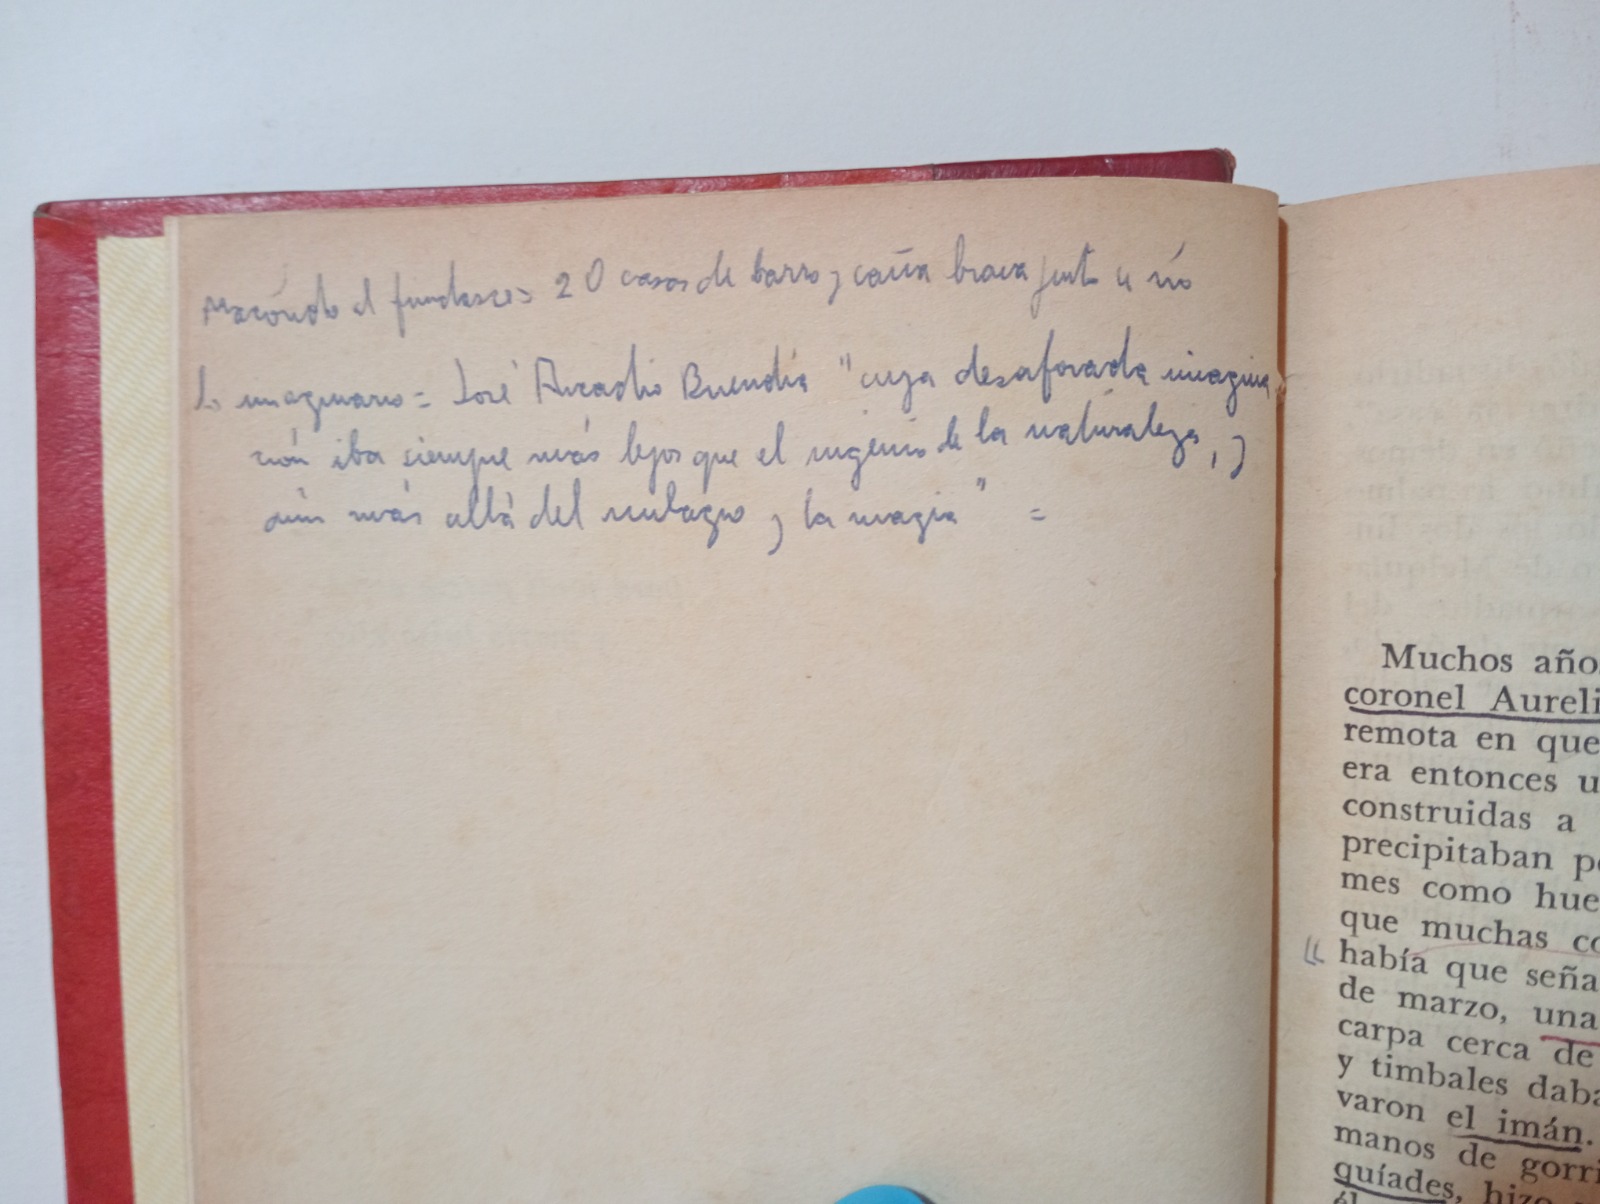 Macondo al fundarse= 20 casas de barro y caña brava junto a río
Lo imaginario = José Arcadio Buendía "cuya desaforada imagina
ción iba siempre más lejos que el ingenio de la naturaleza, y
aún más allá del milagro y la magia" =
Muchos año
coronel Aureli
remota en que
era entonces u
construidas a
precipitaban p
mes como hue
que muchas co
había que seña
de marzo, una
carpa cerca de
y timbales daba
varon el imán.
manos de gorri
quíades, hizo
él